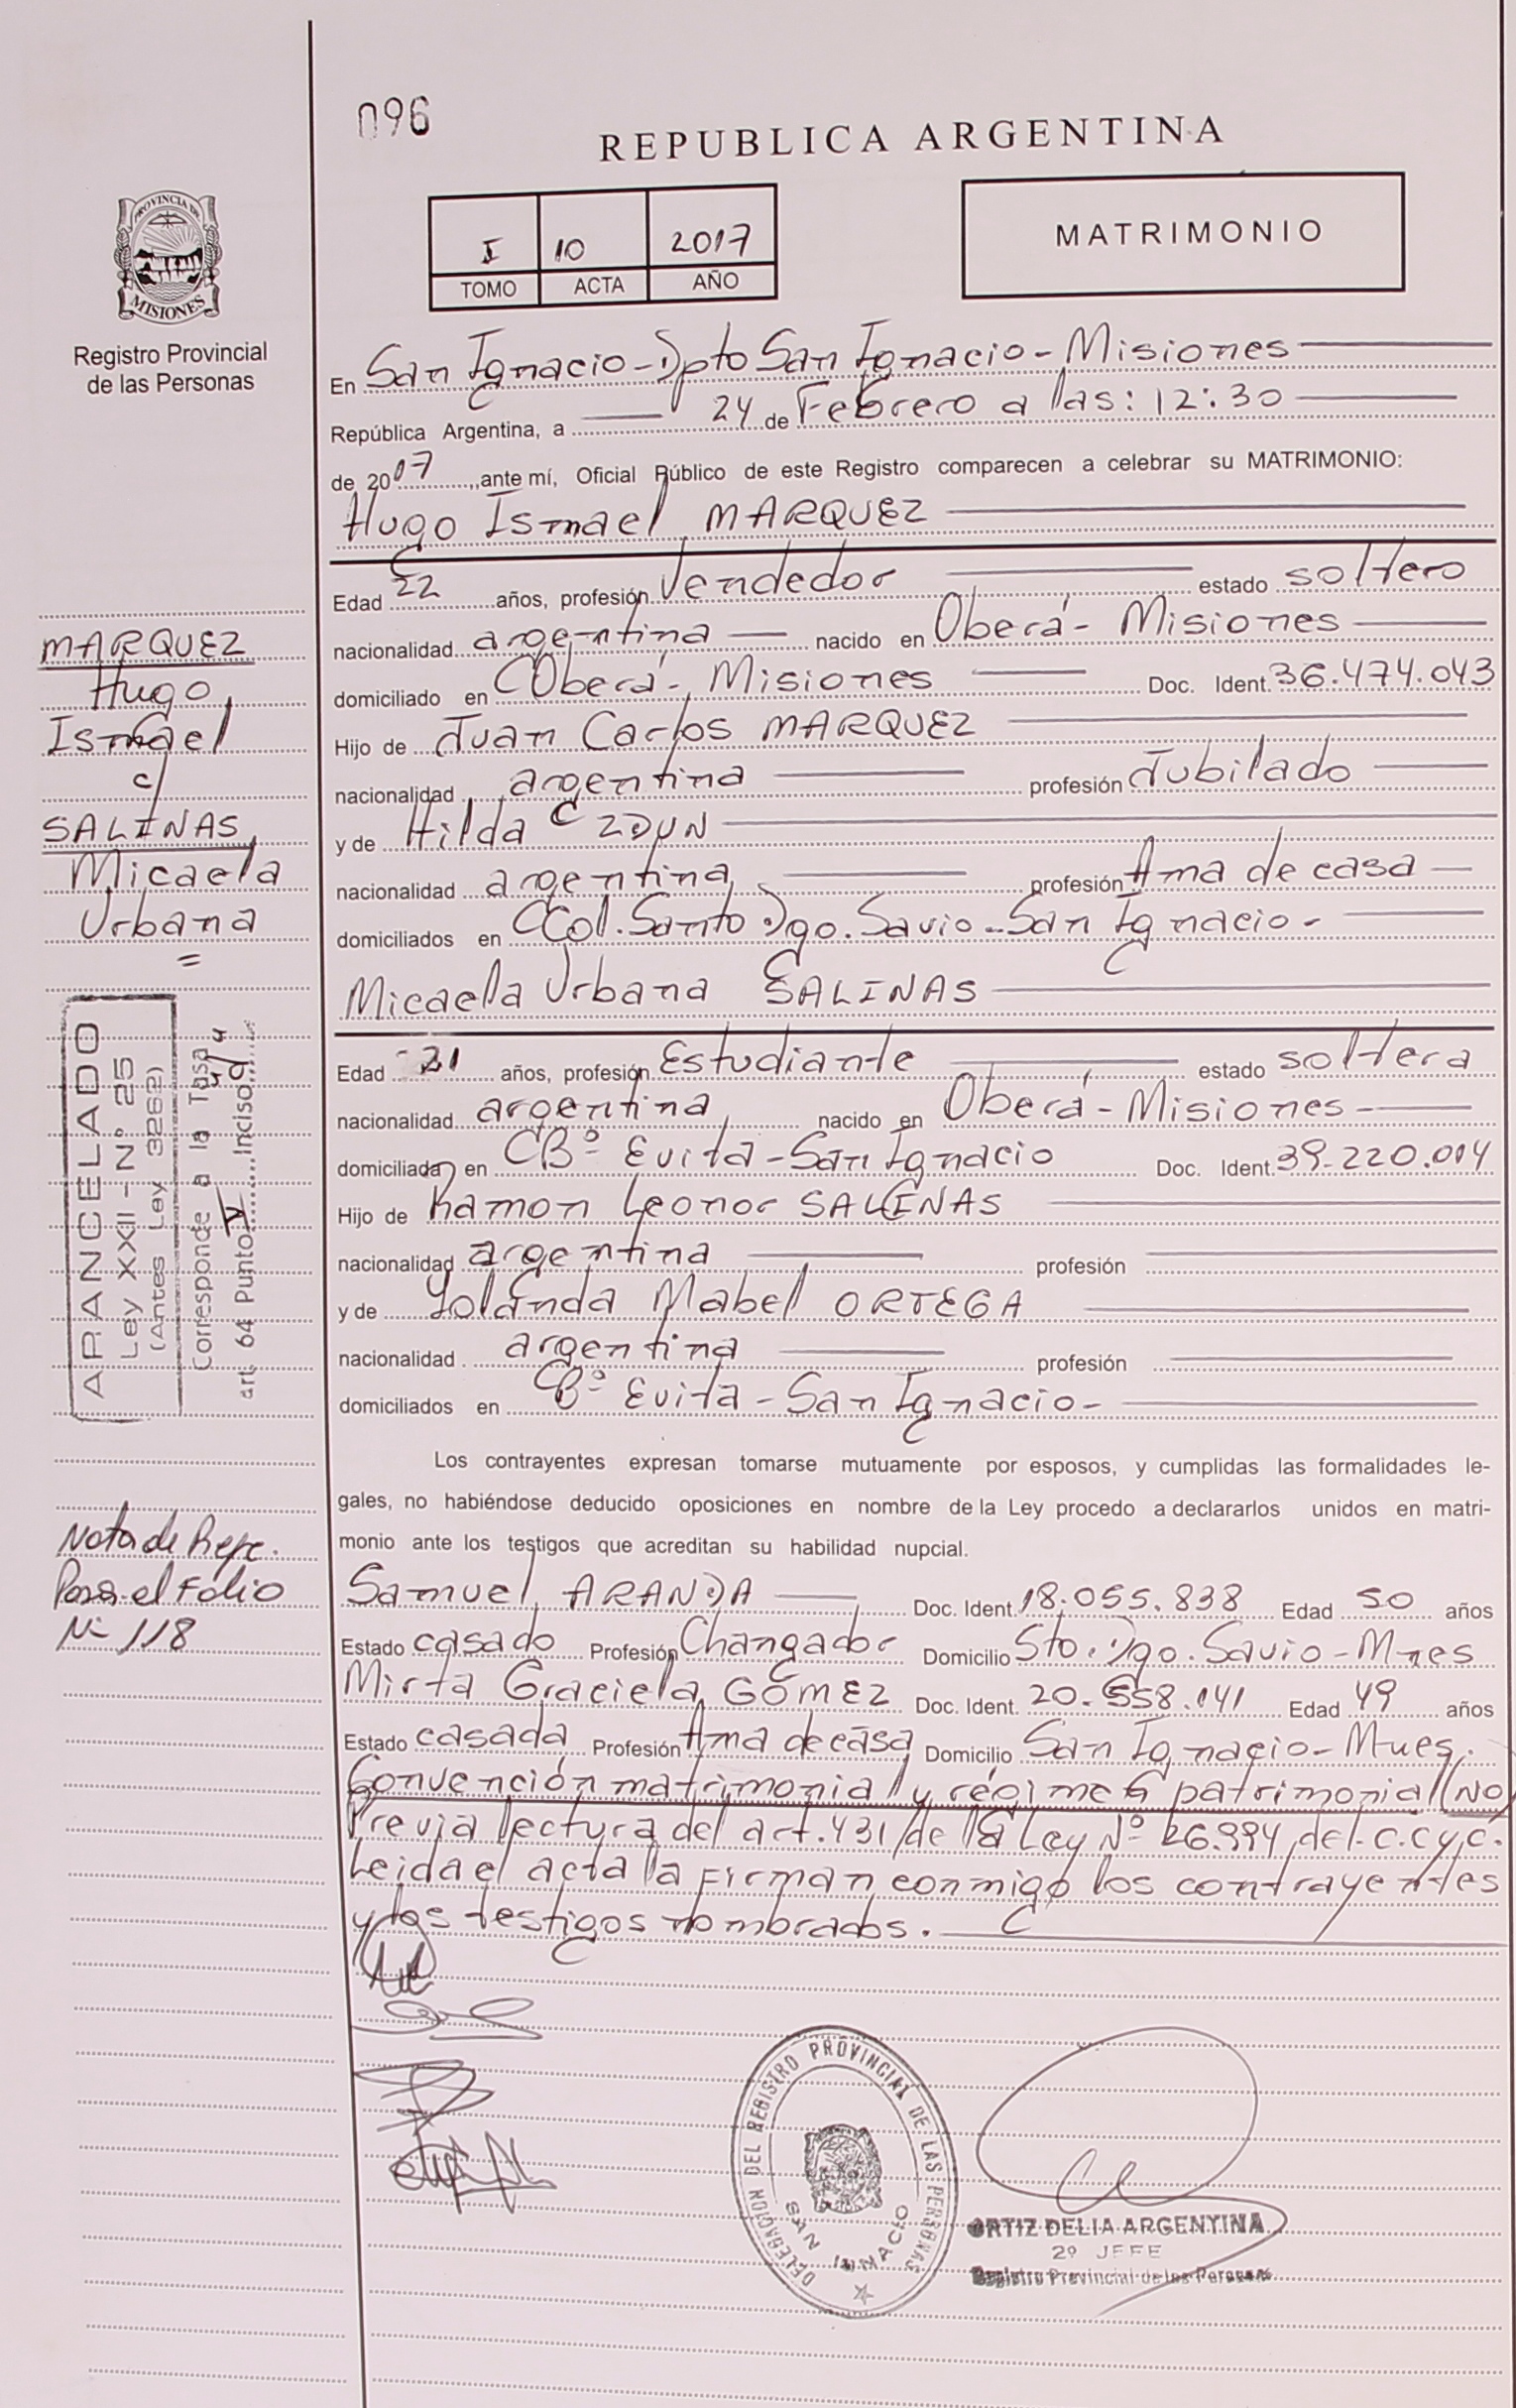 096
REPUBLICA ARGENTINA
I 10 2017
TOMO ACTA AÑO
MATRIMONIO
PROVINCIA DE
MISIONES
Registro Provincial
de las Personas
En San Ignacio - Dpto San Ignacio - Misiones
República Argentina, a 24 de Febrero a las: 12:30
de 2017, ante mí, Oficial Público de este Registro comparecen a celebrar su MATRIMONIO:
Hugo Ismael MARQUEZ
Edad 22 años, profesión Vendedor estado soltero
nacionalidad argentina nacido en Oberá - Misiones
domiciliado en Oberá - Misiones Doc. Ident. 36.474.043
Hijo de Juan Carlos MARQUEZ
nacionalidad argentina profesión Jubilado
y de Hilda ZDUN
nacionalidad argentina profesión Ama de casa
domiciliados en Col. Santo Dgo. Savio - San Ignacio -
Micaela Urbana SALINAS
Edad 21 años, profesión Estudiante estado soltera
nacionalidad argentina nacido en Oberá - Misiones -
domiciliada en Bº Evita - San Ignacio Doc. Ident. 39.220.014
Hijo de Ramon Leonor SALINAS
nacionalidad argentina profesión
y de Yolanda Mabel ORTEGA
nacionalidad argentina profesión
domiciliados en Bº Evita - San Ignacio -
Los contrayentes expresan tomarse mutuamente por esposos, y cumplidas las formalidades le-
gales, no habiéndose deducido oposiciones en nombre de la Ley procedo a declararlos unidos en matri-
monio ante los testigos que acreditan su habilidad nupcial.
Samuel ARANDA Doc. Ident. 18.055.838 Edad 50 años
Estado casado Profesión Changador Domicilio Sto. Dgo. Savio - Mnes
Mirta Graciela GÓMEZ Doc. Ident. 20.558.141 Edad 49 años
Estado casada Profesión Ama de casa Domicilio San Ignacio - Mnes.
Convención matrimonial y régimen patrimonial (NO)
Previa lectura del art. 431 de la Ley Nº 26.994 del C.C y C.
Leida el acta la firman conmigo los contrayentes
y los testigos nombrados.
MARQUEZ
Hugo
Ismael
c/
SALINAS
Micaela
Urbana
=
ARANCELADO
Ley XXII - Nº 25
(Antes Ley 3262)
Corresponde a la Tasa
art. 64 Punto V Inciso
Nota de Refe.
Pasa el Folio
Nº 118
DELEGACION DEL REGISTRO PROVINCIAL DE LAS PERSONAS
SAN IGNACIO
ORTIZ DELIA ARGENTINA
2º JEFE
Registro Provincial de las Personas